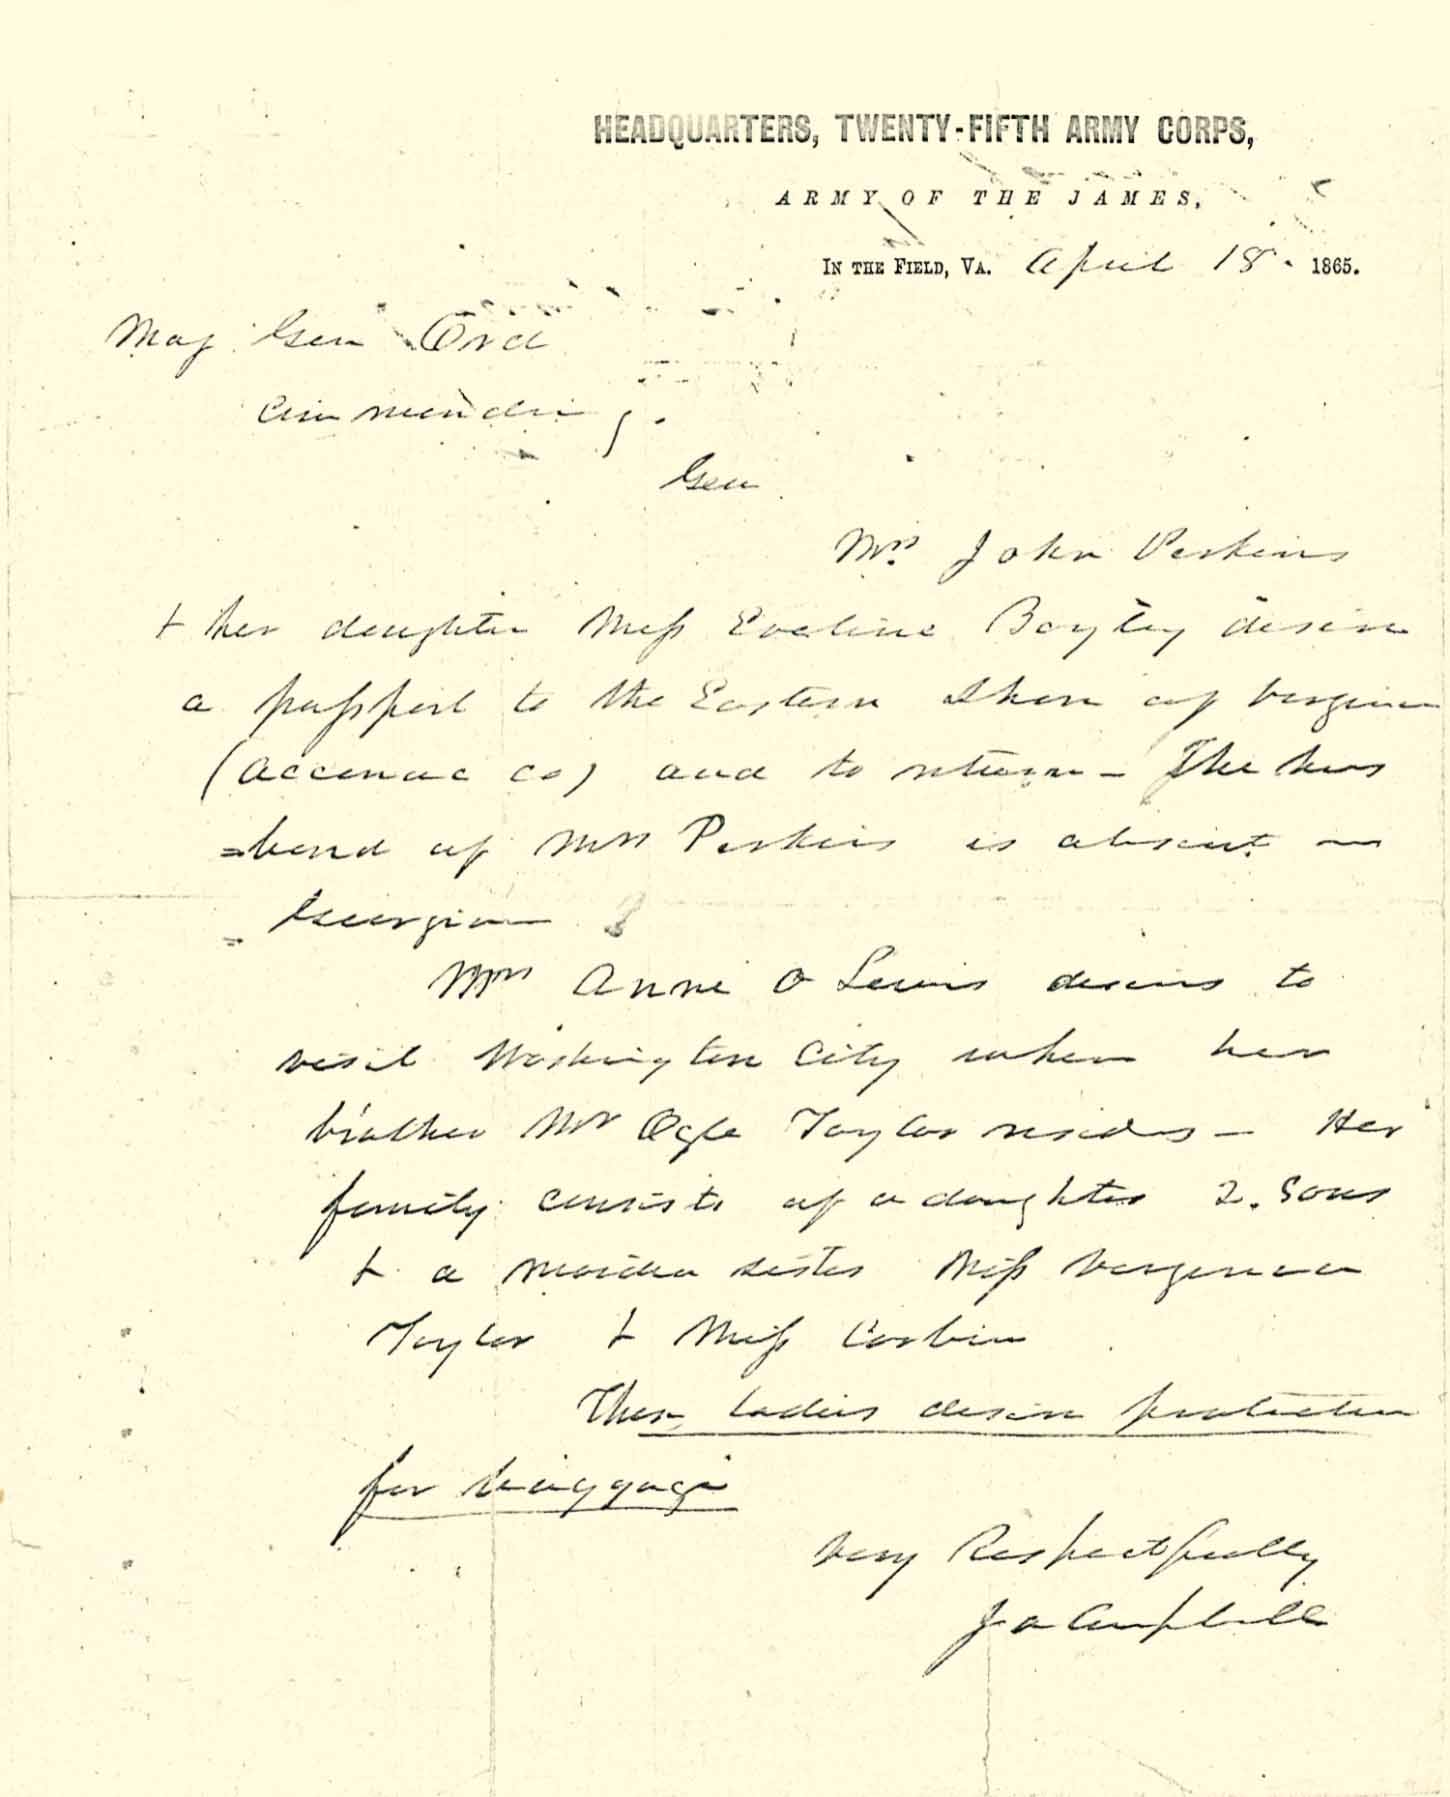 HEADQUARTERS, TWENTY-FIFTH ARMY CORPS,
ARMY OF THE JAMES,
IN THE FIELD, VA. April 18. 1865.
Maj Gen Ord
Commandi
Gen
Mrs. John Perkins
& her daughter Miss Eveline Bayley desire
a passport to the Eastern Shore of Virginia
(Accomac co) and to return - The hus
=band of Mrs Perkins is absent in
Georgia
Mrs Anne O Lewis desires to
visit Washington City where her
brother Mr Ogle Taylor resides - Her
family consists of a daughter 2. Sons
& a maiden sister Miss Virginia
Taylor & Miss Corbin
These ladies desire protection
for baggage
Very Respectfully
J A Campbell